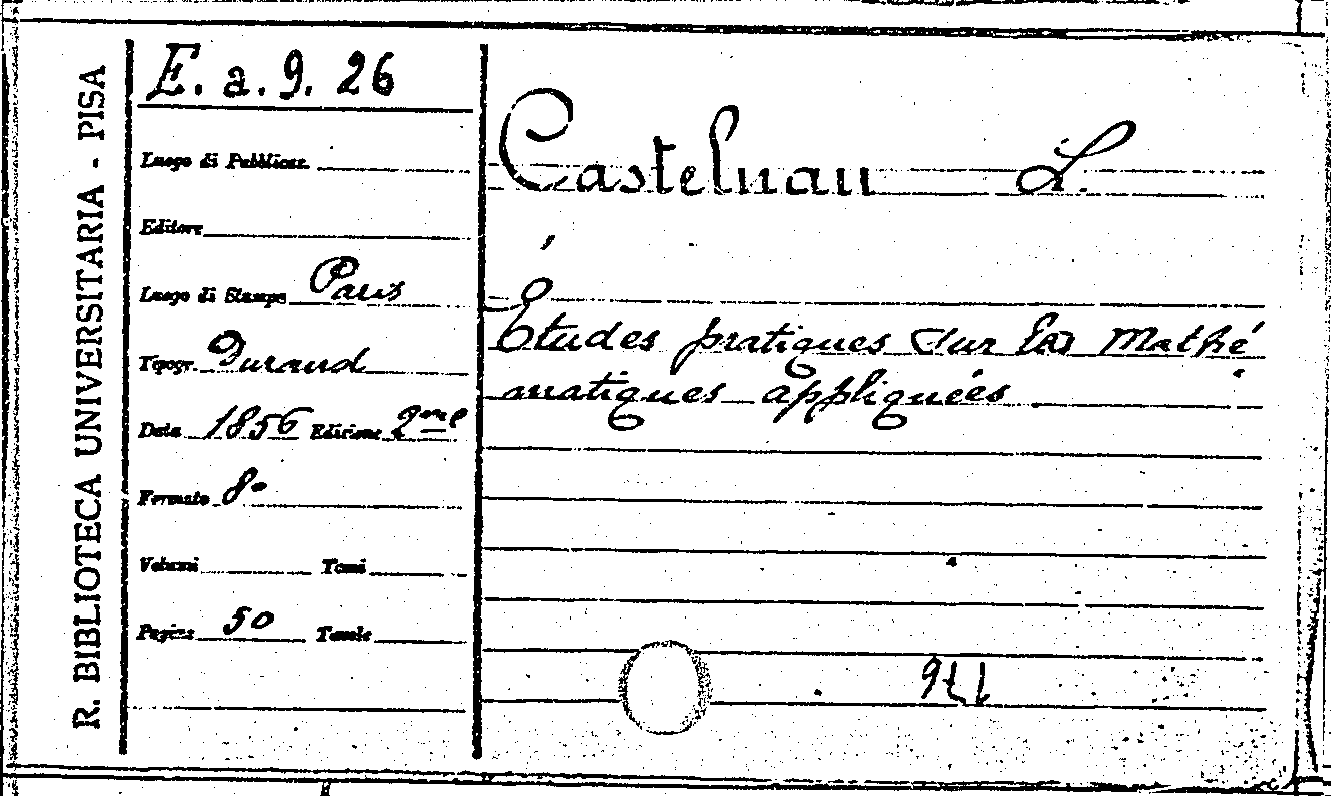 R. BIBLIOTECA UNIVERSITARIA - PISA
E. a. 9. 26
Luogo di Pubblicaz.
Editore
Luogo di Stampa Paris
Tipogr. Durand
Data 1856 Edizione 2me
Formato 8°
Volumi Tomi
Pagine 50 Tavole
Castelnau L.
Études pratiques sur les Mathé
matiques appliquées